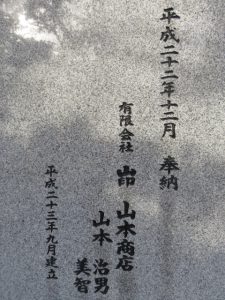 平成二十二年十二月 奉納
有限会社 山木商店
山木 治男
美智
平成二十三年九月建立